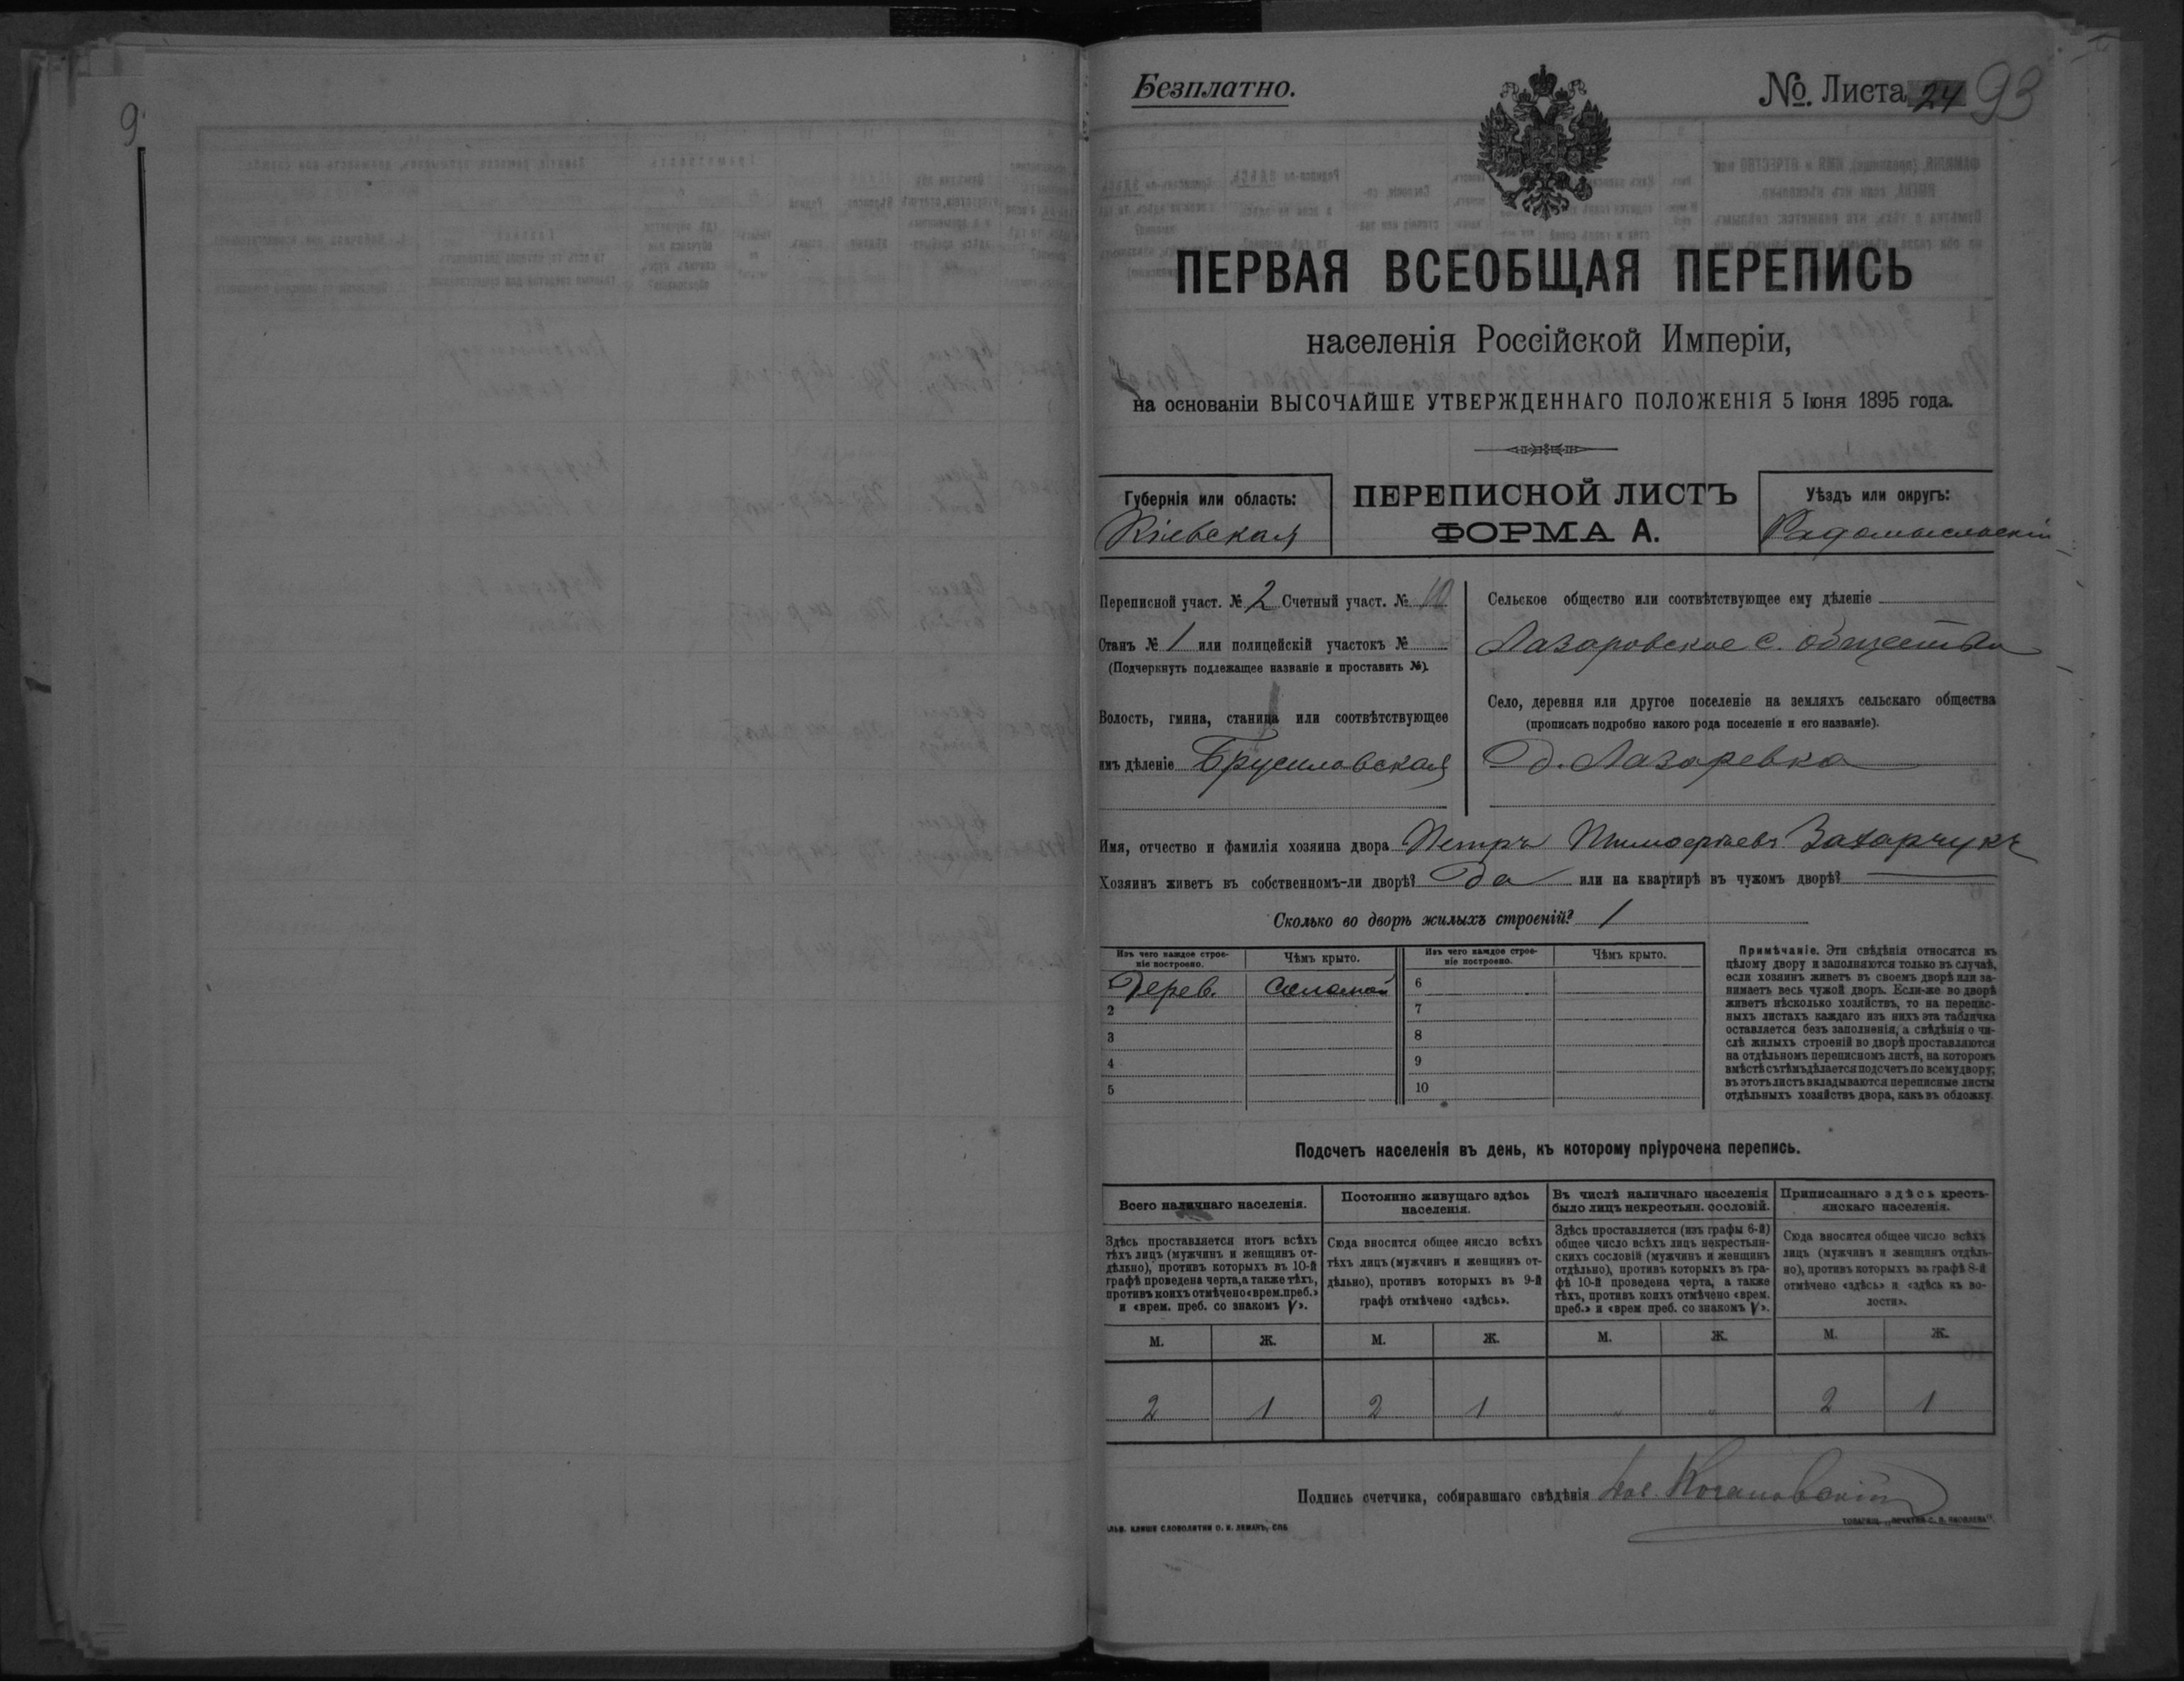 9
Безплатно.
№ Листа 24 93
ПЕРВАЯ ВСЕОБЩАЯ ПЕРЕПИСЬ
населенія Россійской Имперіи,
на основаніи ВЫСОЧАЙШЕ УТВЕРЖДЕННАГО ПОЛОЖЕНІЯ 5 Іюня 1895 года.
Губернія или область:
Кіевская
ПЕРЕПИСНОЙ ЛИСТЪ
ФОРМА А.
Уѣздъ или округъ:
Радомысльскій
Переписной участ. № 2 Счетный участ. № 10
Станъ № 1 или полицейскій участокъ №
(Подчеркнуть подлежащее названіе и проставить №).
Волость, гмина, станица или соотвѣтствующее
имъ дѣленіе Брусиловская
Сельское общество или соотвѣтствующее ему дѣленіе
Лазаровское с. общество
Село, деревня или другое поселеніе на земляхъ сельскаго общества
(прописать подробно какого рода поселеніе и его названіе).
д. Лазаревка
Имя, отчество и фамилія хозяина двора Петръ Тимофѣевъ Захарчукъ
Хозяинъ живетъ въ собственномъ-ли дворѣ? Да или на квартирѣ въ чужомъ дворѣ?
Сколько во дворѣ жилыхъ строеній? 1
Изъ чего каждое строе-
ніе построено.
Чѣмъ крыто.
Изъ чего каждое строе-
ніе построено.
Чѣмъ крыто.
1 Дерев. Соломой 6
2 7
3 8
4 9
5 10
Примѣчаніе. Эти свѣдѣнія относятся къ
цѣлому двору и заполняются только въ случаѣ,
если хозяинъ живетъ въ своемъ дворѣ или за-
нимаетъ весь чужой дворъ. Если-же во дворѣ
живетъ нѣсколько хозяйствъ, то на перепис-
ныхъ листахъ каждаго изъ нихъ эта табличка
оставляется безъ заполненія, а свѣдѣнія о чи-
слѣ жилыхъ строеній во дворѣ проставляются
на отдѣльномъ переписномъ листѣ, на которомъ
вмѣстѣ съ тѣмъ дѣлается подсчетъ по всему двору;
въ этотъ листъ вкладываются переписные листы
отдѣльныхъ хозяйствъ двора, какъ въ обложку.
Подсчетъ населенія въ день, къ которому пріурочена перепись.
Всего наличнаго населенія.
Здѣсь проставляется итогъ всѣхъ
тѣхъ лицъ (мужчинъ и женщинъ от-
дѣльно), противъ которыхъ въ 10-й
графѣ проведена черта, а также тѣхъ,
противъ коихъ отмѣчено «врем. преб.»
и «врем. преб. со знакомъ V».
Постоянно живущаго здѣсь
населенія.
Сюда вносится общее число всѣхъ
тѣхъ лицъ (мужчинъ и женщинъ от-
дѣльно), противъ которыхъ въ 9-й
графѣ отмѣчено «здѣсь».
Въ числѣ наличнаго населенія
было лицъ некрестьян. сословій.
Здѣсь проставляется (изъ графы 6-й)
общее число всѣхъ лицъ некрестьян-
скихъ сословій (мужчинъ и женщинъ
отдѣльно), противъ которыхъ въ гра-
фѣ 10-й проведена черта, а также
тѣхъ, противъ коихъ отмѣчено «врем.
преб.» и «врем преб. со знакомъ V».
Приписаннаго здѣсь кресть-
янскаго населенія.
Сюда вносится общее число всѣхъ
лицъ (мужчинъ и женщинъ отдѣль-
но), противъ которыхъ въ графѣ 8-й
отмѣчено «здѣсь» и «здѣсь къ во-
лости».
М. Ж. М. Ж. М. Ж. М. Ж.
2 1 2 1 „ „ 2 1
Подпись счетчика, собиравшаго свѣдѣнія Кочановскій
КЛИШЕ СЛОВОЛИТНИ О. И. ЛЕМАНЪ, СПБ
ТОВАРИЩ. „ПЕЧАТНЯ С. П. ЯКОВЛЕВА“.